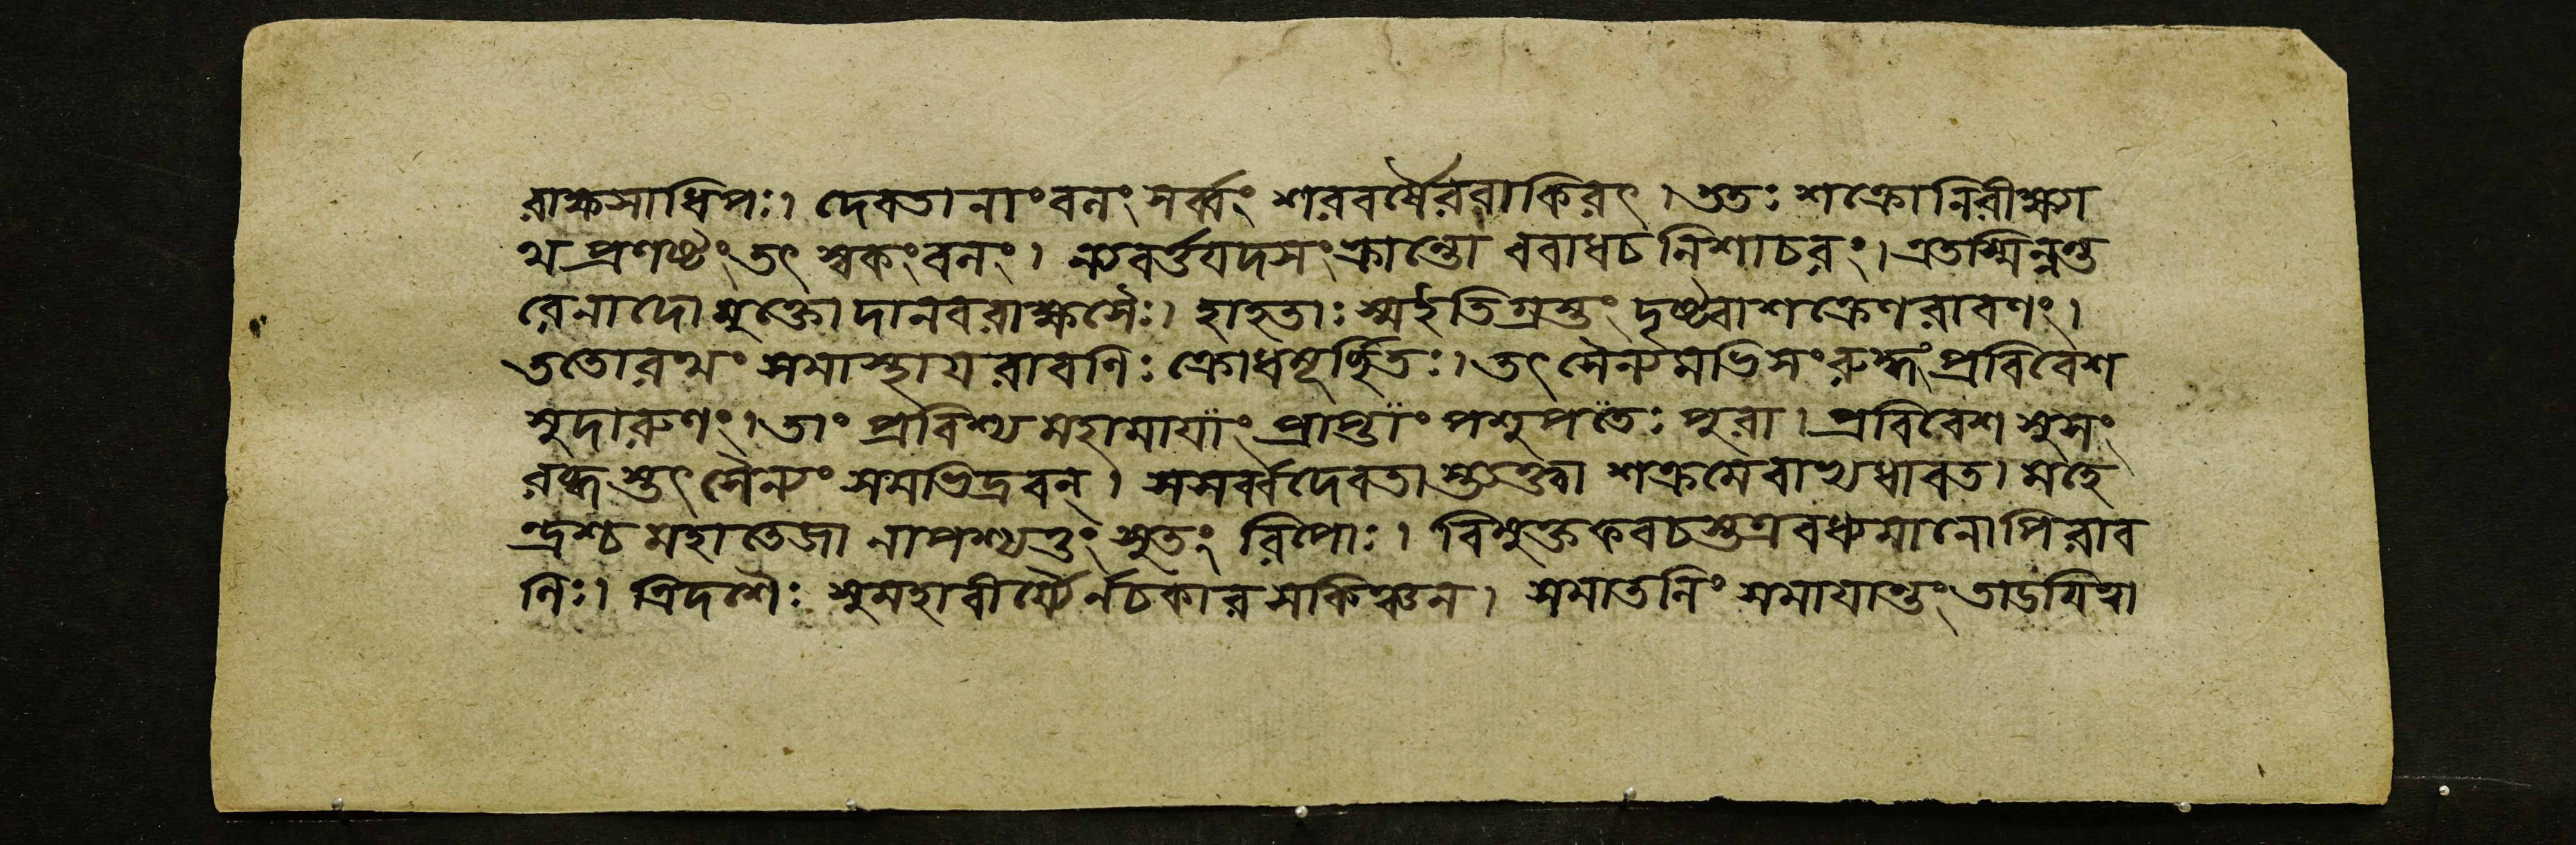 রাক্ষসাধিপঃ। দেবতানাংবনং সর্ব্বং শরবর্ষৈরবাকিরৎ। ততঃ শক্রোনিরীক্ষ্যা
থ প্রণষ্টংতৎ স্বকংবনং। ন্যবর্ত্তযদসংক্রান্তো ববাধচনিশাচরং। এতস্মিন্নন্ত
রেনাদো মুক্তোদানবরাক্ষসৈঃ। হাহতাঃ স্মইতিগ্রস্তং দৃষ্ট্বাশক্রেণরাবণং।
ততোরথং সমাস্থায রাবণিঃ ক্রোধমূর্চ্ছিতঃ। তৎ সৈন্যমভিসংরুদ্ধং প্রবিবেশ
সুদারুণং। তাং প্রবিশ্য মহামাযাং প্রাপ্তাং পশুপতেঃ পুরা। প্রবিবেশ সুসং
রব্ধস্তৎ সৈন্যং সমভিদ্রবন্। সসর্ব্বদেবতাস্ত্যক্ত্বা শক্রমেবাভ্যধাবত। মহে
ন্দ্রশ্চ মহাতেজা নাপশ্যত্তং সুতং রিপোঃ। বিমুক্তকবচস্তত্রবধ্যমানোপিরাব
ণিঃ। ত্রিদশৈঃ সুমহাবীর্য্যৈর্নচকার সকিঞ্চন। সমাতলিং সমাযান্তং তাডযিত্বা